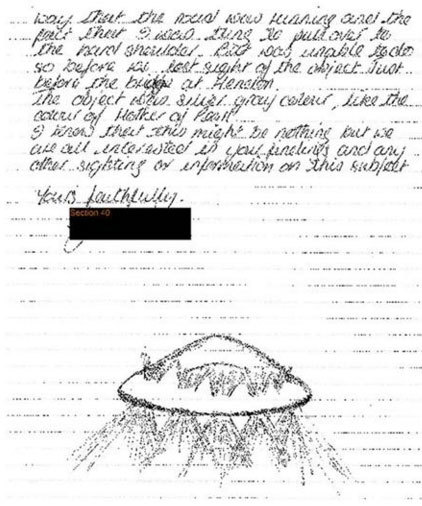 way that the road was running and the
fact that I was trying to pull over to
the hard shoulder. But was unable to do
so before we lost sight of the object just
before the bridge at Hendon.
The object was silver gray colour, like the
colour of Mother of Pearl.
I know that this might be nothing but we
are all interested in your findings and any
other sighting or information on this subject
Yours faithfully.
Section 40